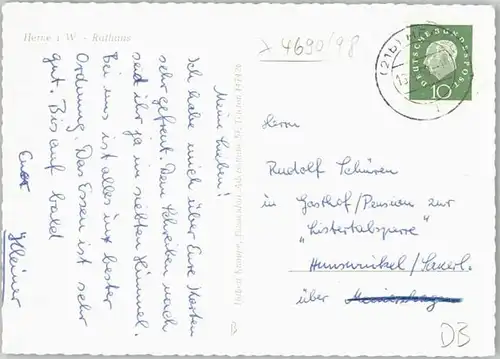 Herne i W - Rathaus
4690/98
Meine Lieben!
Ich habe mich über Eure Karten
sehr gefreut. Dem Schreiben nach
seid ihr ja im siebten Himmel.
Bei uns ist alles in bester
Ordnung. Das Essen ist sehr
gut. Bis auf bald
Euer
DEUTSCHE BUNDESPOST
10
(21b)
Herrn
Rudolf Schüren
in Gasthof/Pension zur
"Listertalsperre"
Hunswinkel/Sauerl.
über
B
DB